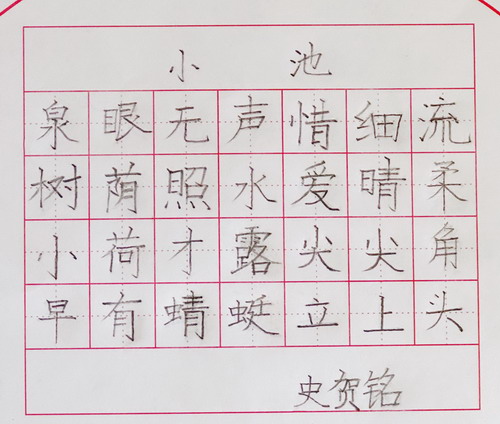 小池
泉眼无声惜细流
树荫照水爱晴柔
小荷才露尖尖角
早有蜻蜓立上头
史贺铭